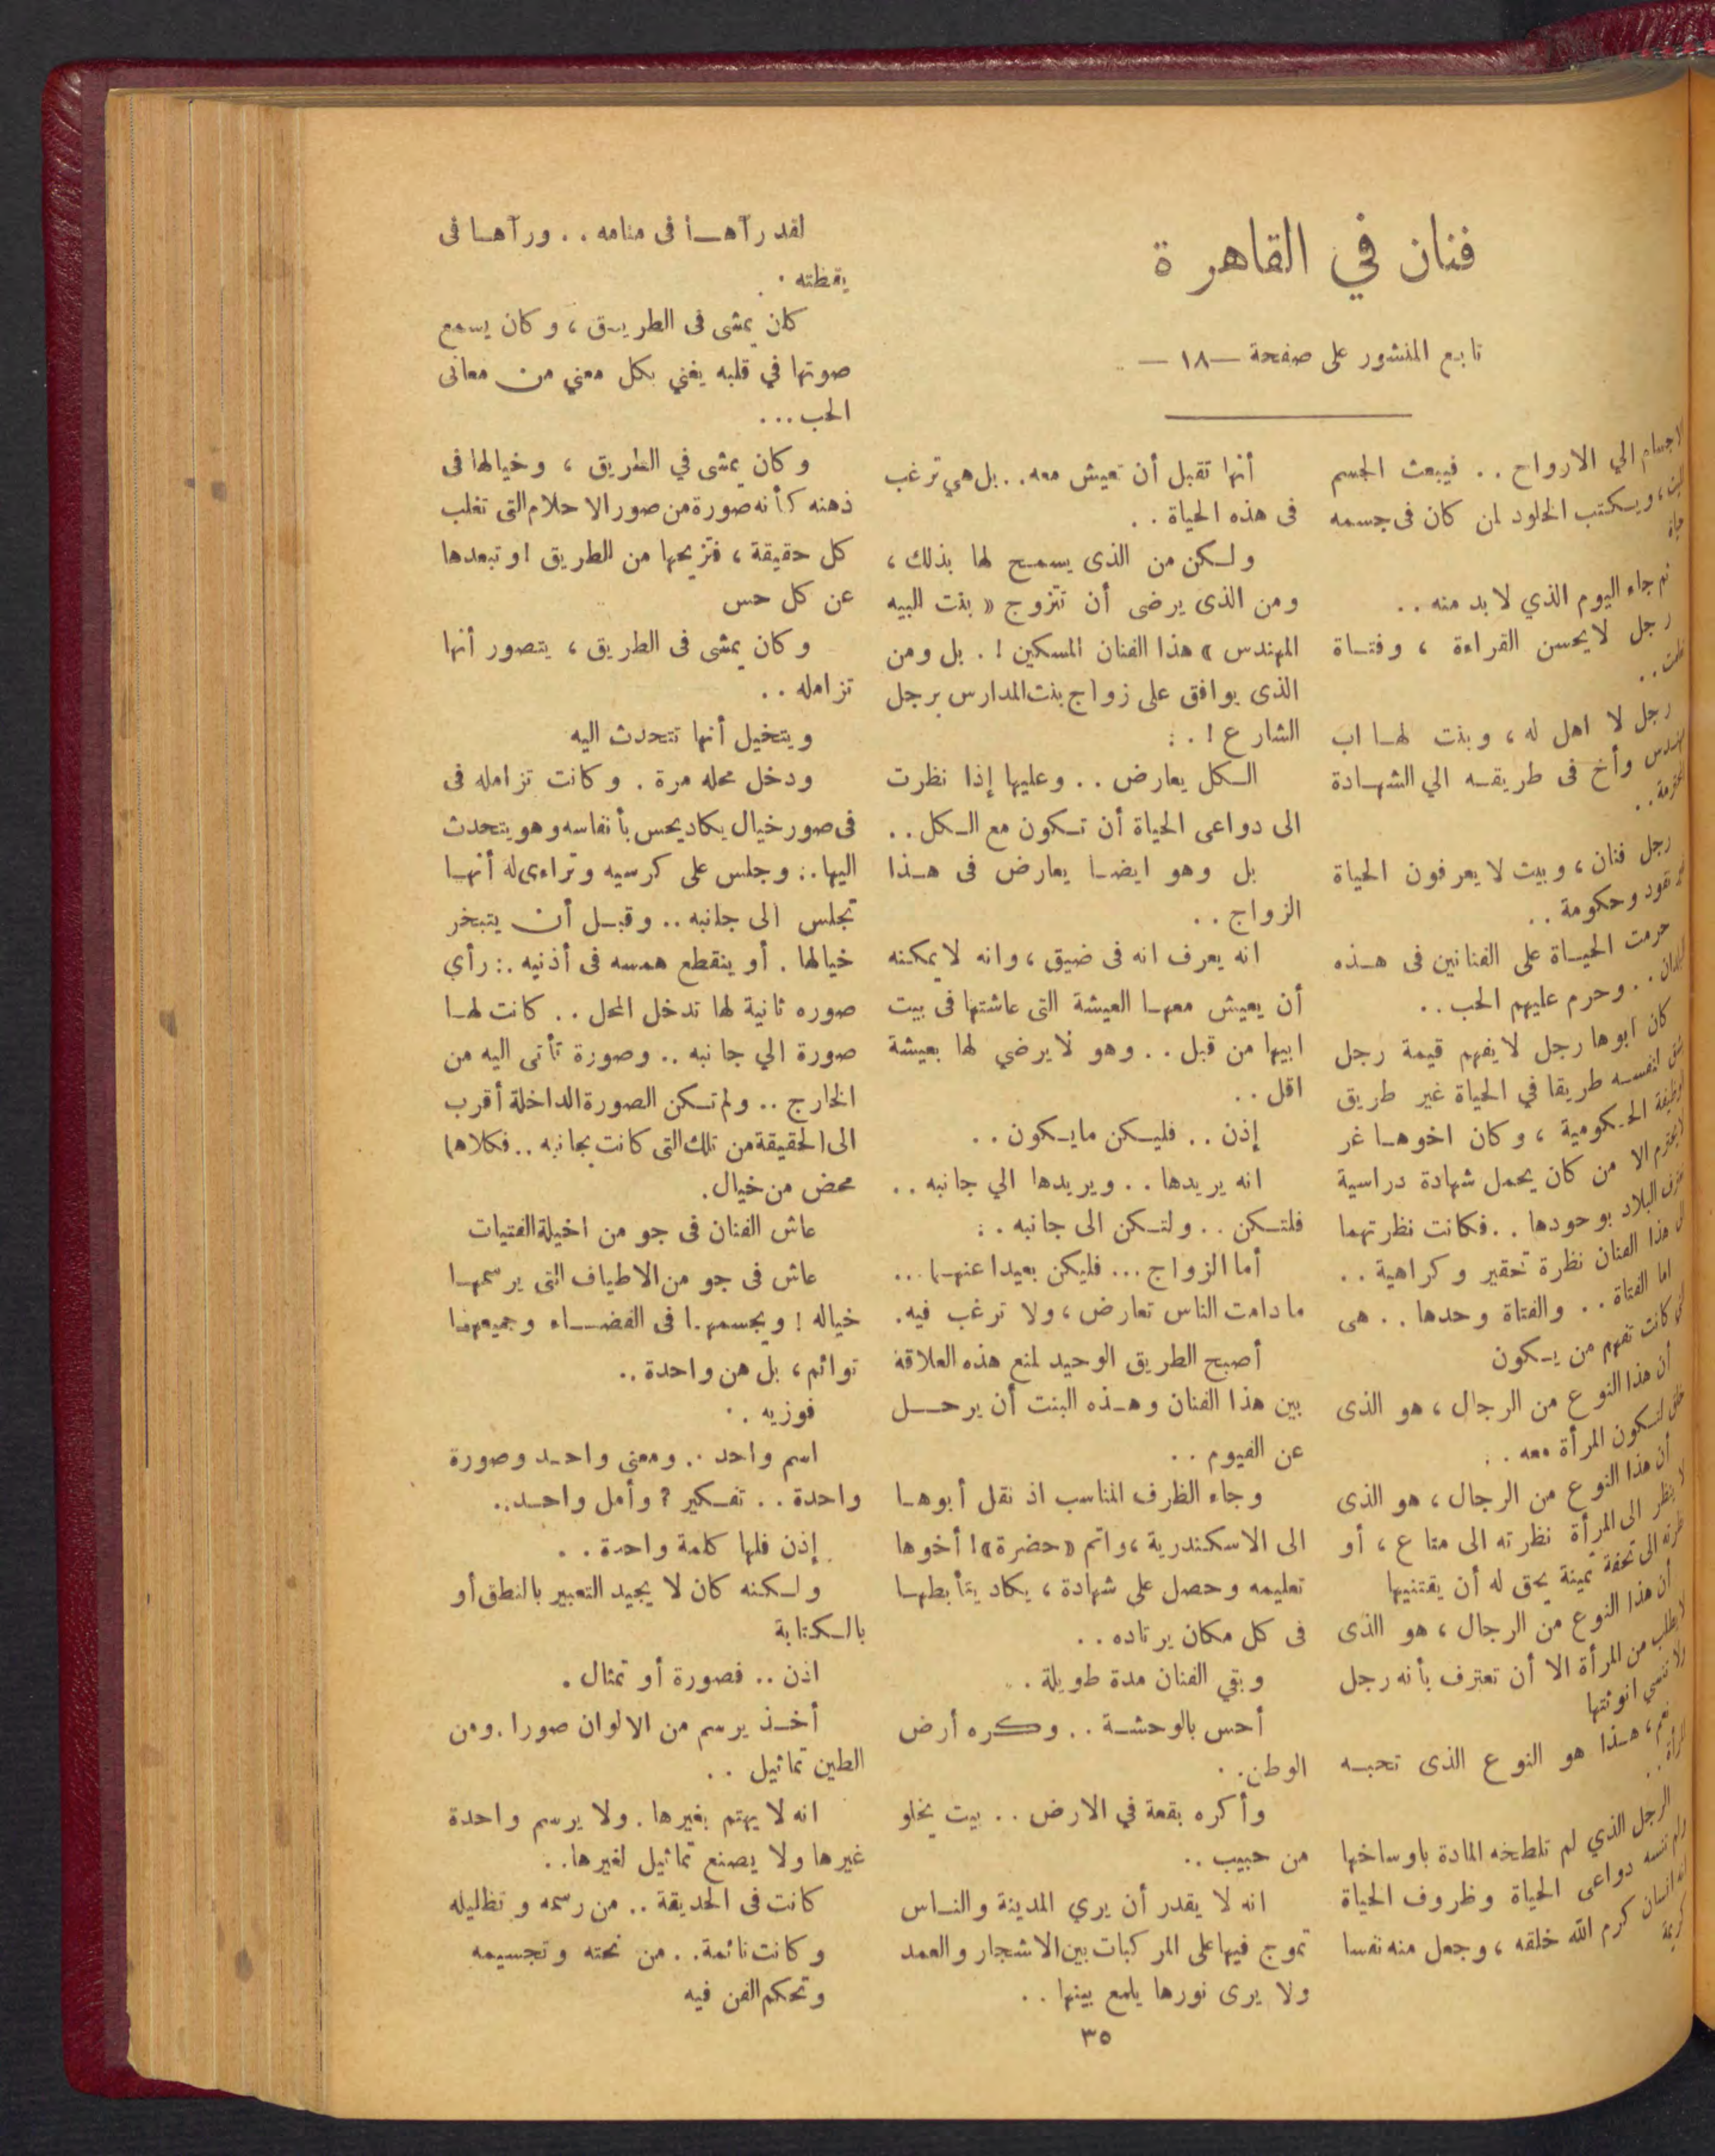 فنان في القاهرة
تابع المنشور على صفحة —١٨—
الاجسام الي الارواح .. فيبعث الجسم
، ويكتب الخلود لمن كان فى جسمه
حياة
ثم جاء اليوم الذي لابد منه ..
رجل لايحسن القراءة ، وفتاة
رجل لا اهل له ، وبنت لها اب
مهندس وأخ فى طريقه الي الشهادة
رجل فنان ، وبيت لا يعرفون الحياة
نقود وحكومة ..
حرمت الحياة على الفنانين فى هذه
البلدان .. وحرم عليهم الحب ..
كان ابوها رجل لايفهم قيمة رجل
شق لنفسه طريقا في الحياة غير طريق
الوظيفة الحكومية ، وكان اخوها غر
لايحترم الا من كان يحمل شهادة دراسية
تعترف البلاد بوحودها .. فكانت نظرتهما
الى هذا الفنان نظرة تحقير وكراهية ..
اما الفتاة .. والفتاة وحدها .. هى
التى كانت تفهم من يكون
أن هذا النوع من الرجال ، هو الذى
خلق لتكون المرأة معه ..
أن هذا النوع من الرجال ، هو الذى
لا ينظر الى المرأة نظرته الى متاع ، أو
نظرته الى تحفة ثمينة يحق له أن يقتنيها
أن هذا النوع من الرجال ، هو الذى
لايطلب من المرأة الا أن تعترف بأنه رجل
ولا تنسي انوثتها
نعم ، هذا هو النوع الذى تحبه
المرأة ..
الرجل الذي لم تلطخه المادة باوساخها
ولم تنسه دواعى الحياة وظروف الحياة
انه انسان كرم الله خلقه ، وجعل منه نفسا
كريمة
أنها تقبل أن تعيش معه .. بل هي ترغب
فى هذه الحياة ..
ولكن من الذى يسمح لها بذلك ،
ومن الذى يرضى أن تتزوج « بنت البيه
المهندس » هذا الفنان المسكين ! . بل ومن
الذى يوافق على زواج بنت المدارس برجل
الشارع ! . :
الكل يعارض .. وعليها إذا نظرت
الى دواعى الحياة أن تكون مع الكل ..
بل وهو ايضا يعارض فى هذا
الزواج ..
انه يعرف انه فى ضيق ، وانه لايمكنه
أن يعيش معها العيشة التى عاشتها فى بيت
ابيها من قبل .. وهو لايرضي لها بعيشة
اقل ..
إذن .. فليكن مايكون ..
انه يريدها .. ويريدها الي جانبه ..
فلتكن .. ولتكن الى جانبه . :
أما الزواج ... فليكن بعيدا عنهما ...
مادامت الناس تعارض ، ولا ترغب فيه .
أصبح الطريق الوحيد لمنع هذه العلاقة
بين هذا الفنان وهذه البنت أن يرحل
عن الفيوم ..
وجاء الظرف المناسب اذ نقل أبوها
الى الاسكندرية ، واتم «حضرة» ! أخوها
تعليمه وحصل على شهادة ، يكاد يتأبطها
فى كل مكان يرتاده ..
وبقي الفنان مدة طويلة .
أحس بالوحشة .. وكره أرض
الوطن ..
وأكره بقعة في الارض .. بيت يخلو
من حبيب ..
انه لا يقدر أن يري المدينة والناس
تموج فيها على المركبات بين الاشجار والعمد
ولا يرى نورها يلمع بينها ..
لقد رآها فى منامه .. ورآها فى
يقظته .
كان يمشى فى الطريق ، وكان يسمع
صوتها في قلبه يغني بكل معني من معانى
الحب ...
وكان يمشى في الطريق ، وخيالها فى
ذهنه كأنه صورة من صور الاحلام التى تغلب
كل حقيقة ، فتزيحها من الطريق او تبعدها
عن كل حس
وكان يمشى فى الطريق ، يتصور أنها
تزامله ..
ويتخيل أنها تتحدث اليه
ودخل محله مرة . وكانت تزامله فى
فى صور خيال يكاد يحس بأنفاسه وهو يتحدث
اليها .: وجلس على كرسيه وتراءى له أنها
تجلس الى جانبه .. وقبل أن يتبخر
خيالها . أو ينقطع همسه فى أذنيه .: رأي
صوره ثانية لها تدخل المحل .. كانت لها
صورة الي جانبه .. وصورة تأتى اليه من
الخارج .. ولم تكن الصورة الداخلة أقرب
الى الحقيقة من تلك التى كانت بجانبه .. فكلاها
محض من خيال .
عاش الفنان فى جو من اخيلة الفتيات
عاش فى جو من الاطياف التى يرسمها
خياله ! ويجسمها فى الفضاء وجميعهن
توائم ، بل هن واحدة ..
فوزيه ..
اسم واحد .. ومعنى واحد وصورة
واحدة .. تفكير ? وأمل واحد ..
إذن فلها كلمة واحدة ..
ولكنه كان لا يجيد التعبير بالنطق أو
بالكتابة
اذن .. فصورة أو تمثال .
أخذ يرسم من الالوان صورا . ومن
الطين تماثيل ..
انه لا يهتم بغيرها . ولا يرسم واحدة
غيرها ولا يصنع تماثيل لغيرها ..
كانت فى الحديقة .. من رسمه وتظليله
وكانت نائمة .. من نحته وتجسيمه
وتحكم الفن فيه
٣٥